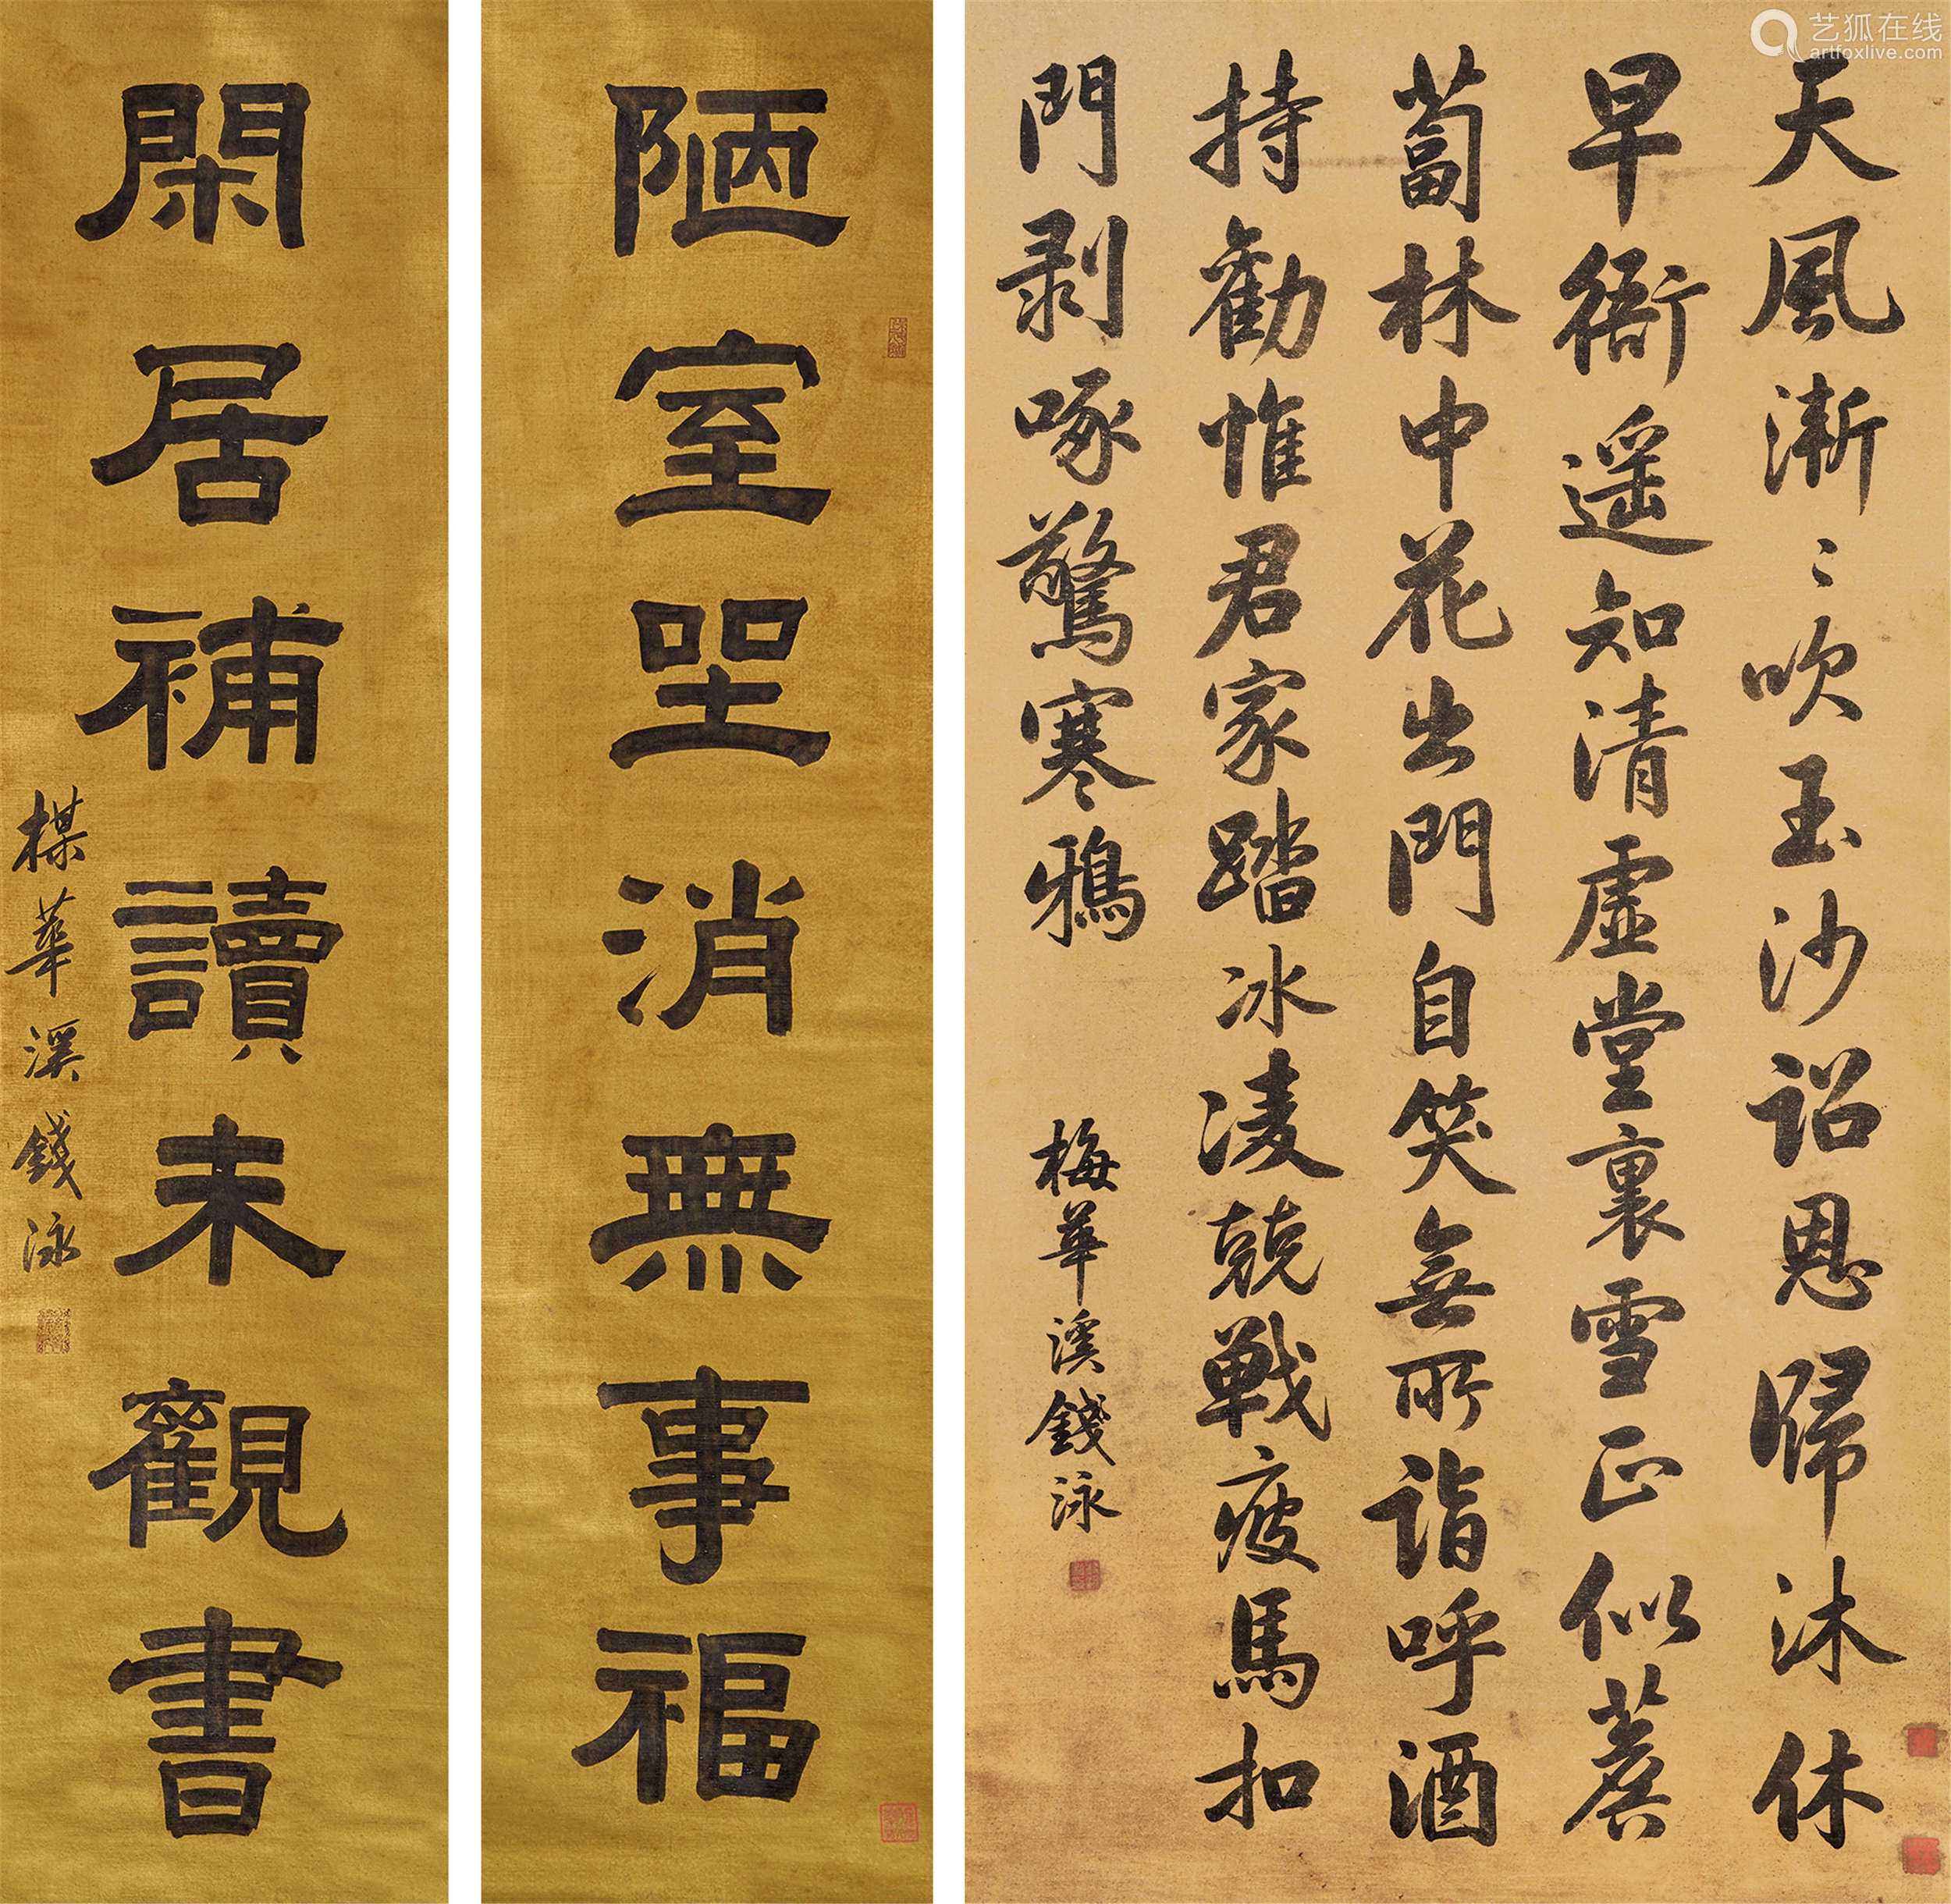 艺狐在线
artfoxlive.com
天風淅〻吹玉沙詔恩歸沐休
早衙遥知清虚堂裏雪正似薝
蔔林中花出門自笑無所詣呼酒
持勸惟君家踏冰凌兢戰疲馬扣
門剥啄驚寒鴉
梅華溪錢泳
陋室坐消無事福
閑居補讀未觀書
楳華溪錢泳